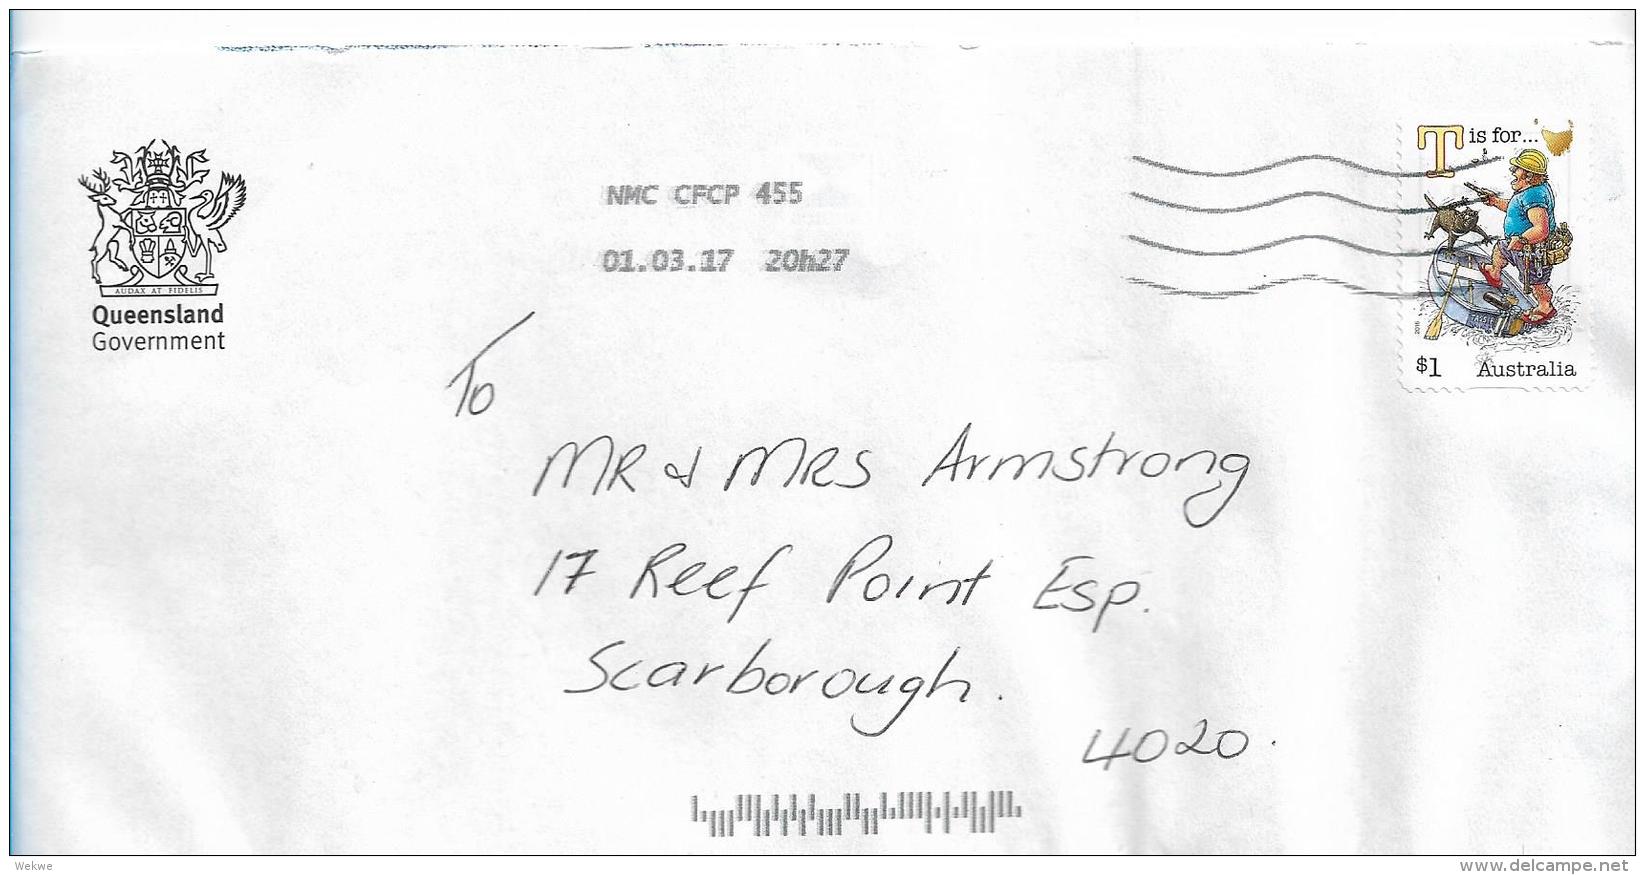 AUDAX AT FIDELIS
Queensland
Government
NMC CFCP 455
01.03.17 20h27
T is for...
TASSIE
2016
$1 Australia
To
MR & MRS Armstrong
17 Reef Point Esp.
Scarborough.
4020.
Wekwe
www.delcampe.net